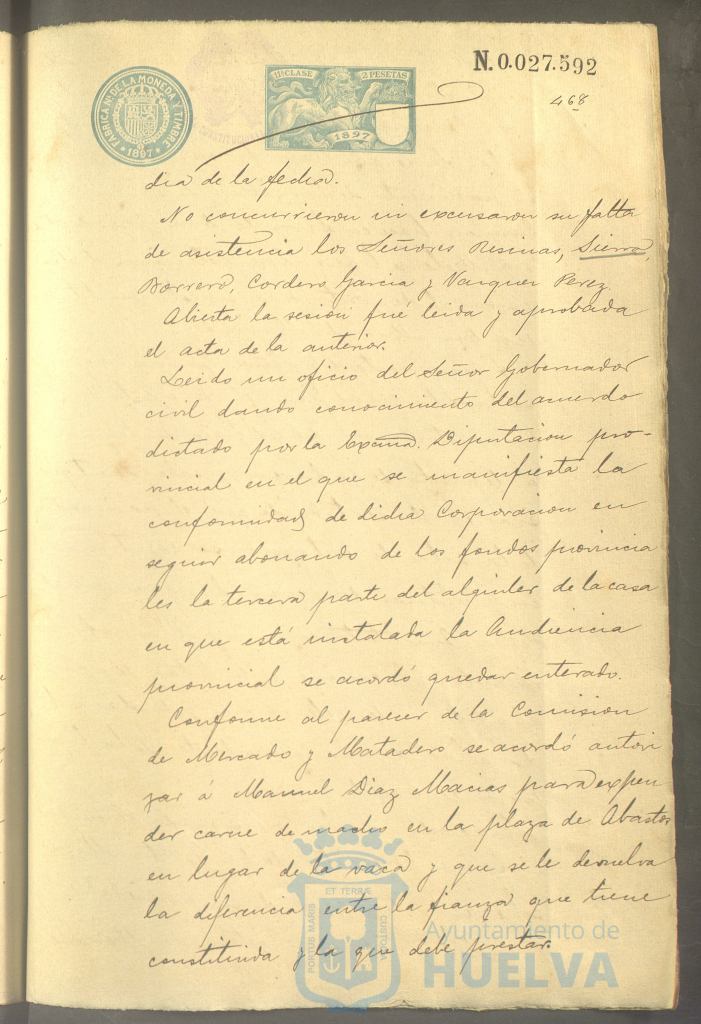 N.0.027.592
468
FABRICA Nl. DE LA MONEDA Y TIMBRE
* 1897 *
11ª CLASE 2 PESETAS
1897
dia de la fecha.
No concurrieron ni excusaron su falta
de asistencia los Señores Resinas, Sierra,
Borrero, Cordero, Garcia y Vazquez Perez.
Abierta la sesion fué leida y aprobada
el acta de la anterior.
Leido un oficio del Señor Gobernador
civil dando conocimiento del acuerdo
dictado por la Excma. Diputacion pro-
vincial en el que se manifiesta la
conformidad de dicha Corporacion en
seguir abonando de los fondos provincia
les la tercera parte del alquiler de la casa
en que está instalada la Audiencia
provincial se acordó quedar enterado.
Conforme al parecer de la Comision
de Mercado y Matadero se acordó autori
zar á Manuel Diaz Macias para expen
der carne de macho en la plaza de Abastos
en lugar de la vaca y que se le devuelva
la diferencia entre la fianza que tiene
constituida y la que debe prestar.
PORTUS MARIS ET TERRÆ CUSTODIA
Ayuntamiento de
HUELVA